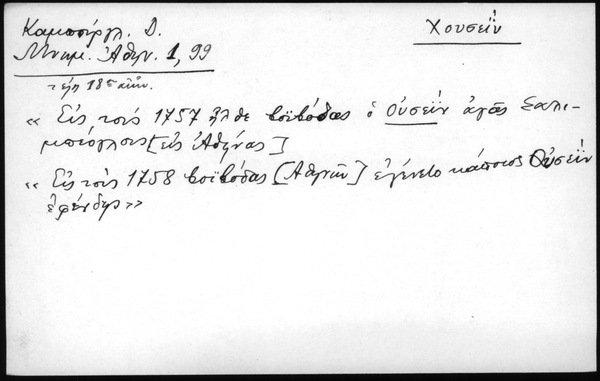 Καμπούργλ. Δ.
Χουσεΐν
Μνημ. Ἀθην. 1, 99
τέλη 18ου αἰῶν.
« Εἰς τοὺς 1757 ἦλθε βοϊβόδας ὁ Οὐσεΐν ἀγᾶς Σαλι-
μπέογλους [εἰς Ἀθήνας]
« Εἰς τοὺς 1758 βοϊβόδας [Ἀθηνῶν] ἐγένετο κάποιος Οὐσεΐν
ἐφέντης »